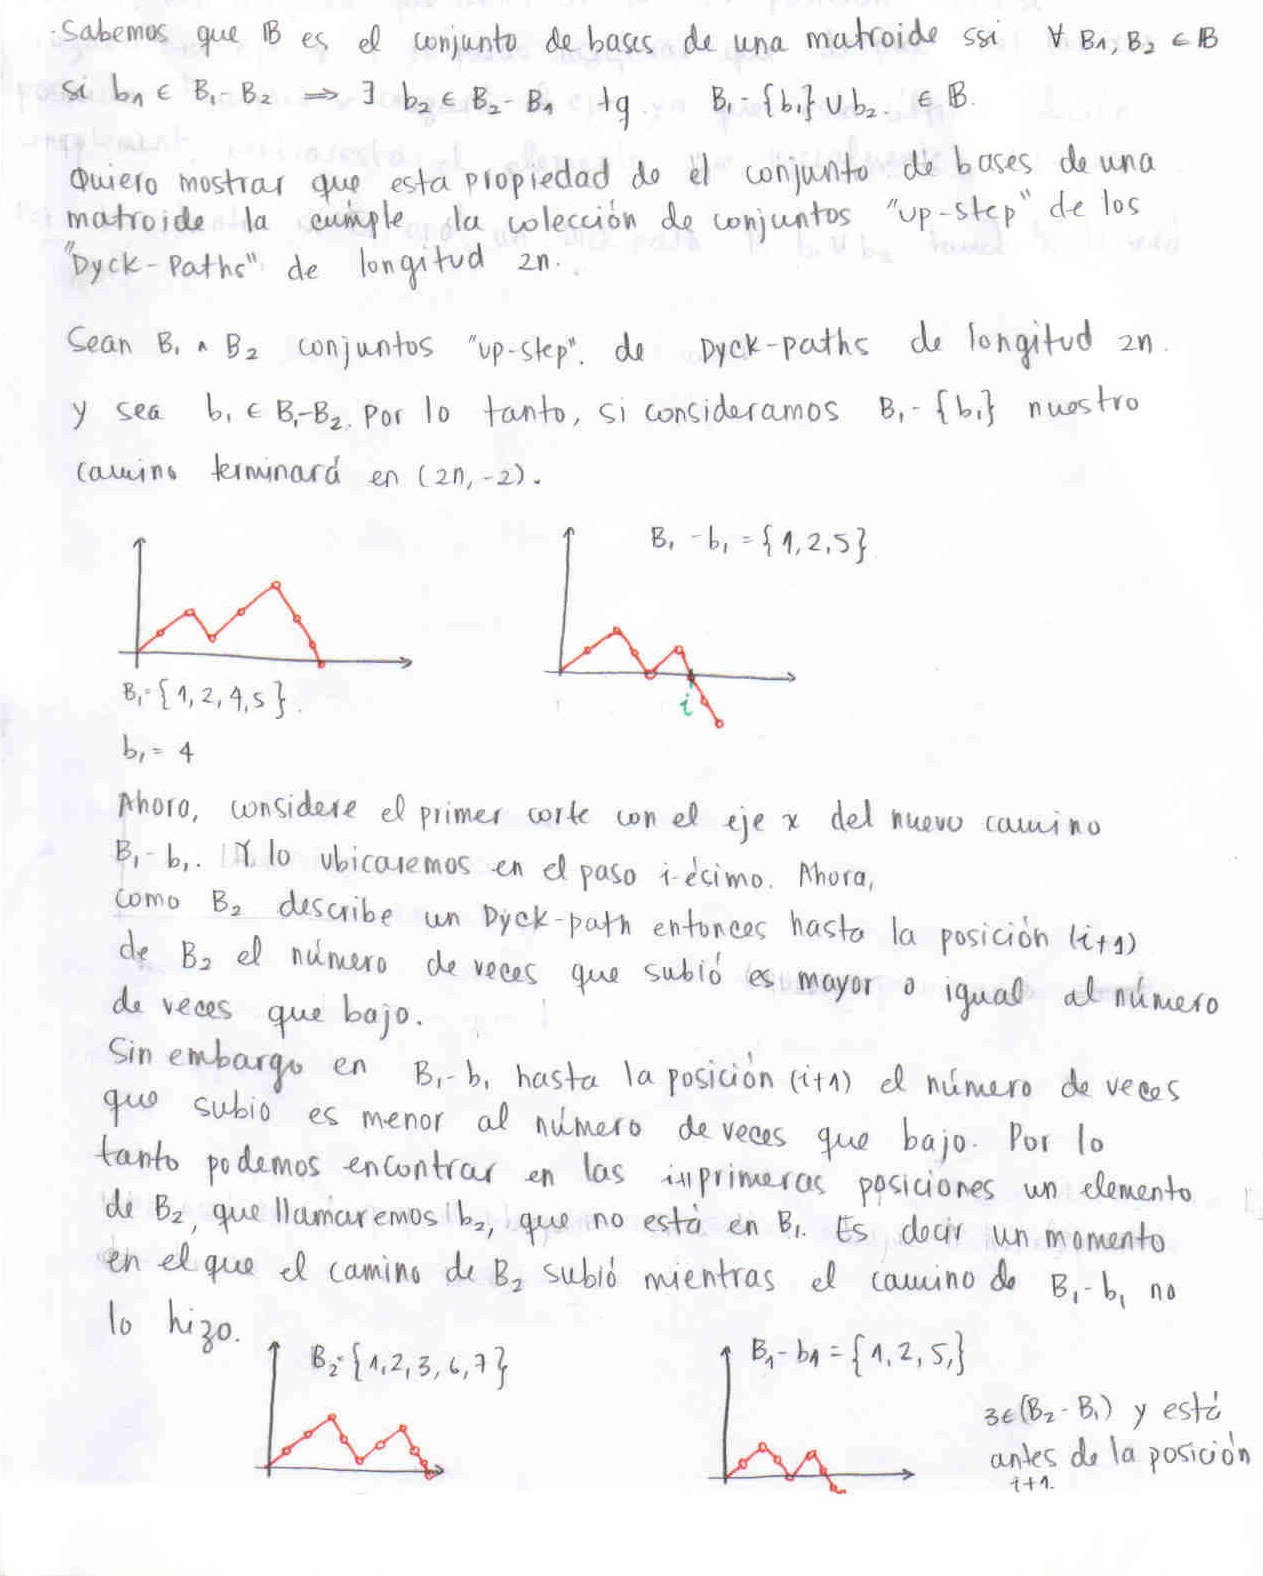 Sabemos que B es el conjunto de bases de una matroide ssi ∀ B₁, B₂ ∈ B
si b₁ ∈ B₁-B₂ ⟹ ∃ b₂ ∈ B₂-B₁ tq. B₁-{b₁}∪b₂. ∈ B.
Quiero mostrar que esta propiedad de el conjunto de bases de una
matroide la cumple la colección de conjuntos "up-step" de los
"Dyck-Paths" de longitud 2n.
Sean B₁ ∧ B₂ conjuntos "up-step". de Dyck-paths de longitud 2n.
y sea b₁ ∈ B₁-B₂. Por lo tanto, si consideramos B₁-{b₁} nuestro
camino terminará en (2n,-2).
B₁ - b₁ = {1,2,5}
i
B₁={1,2,4,5}.
b₁= 4
Ahora, considere el primer corte con el eje x del nuevo camino
B₁-b₁. Y lo ubicaremos en el paso i-écimo. Ahora,
como B₂ describe un Dyck-path entonces hasta la posición (i+1)
de B₂ el número de veces que subió es mayor o igual al número
de veces que bajo.
Sin embargo en B₁-b₁ hasta la posición (i+1) el número de veces
que subio es menor al número de veces que bajo. Por lo
tanto podemos encontrar en las i+1 primeras posiciones un elemento
de B₂, que llamaremos b₂, que no está en B₁. Es decir un momento
en el que el camino de B₂ subió mientras el camino de B₁-b₁ no
lo hizo.
B₂={1,2,3,6,7}
B₁-b₁={1,2,5,}
3∈(B₂-B₁) y está
antes de la posición
i+1.